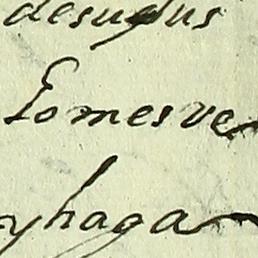 desusus
Lomesve
yhaga